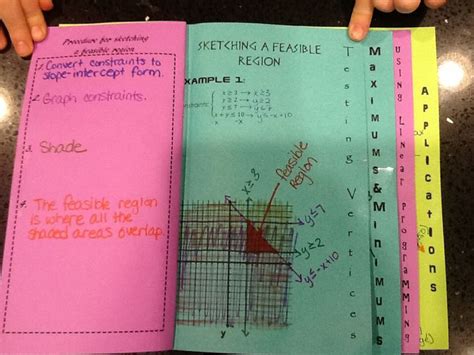 Procedure for sketching
a feasible region
1. Convert constraints to
slope-intercept form.
2. Graph constraints.
3. Shade
4. The feasible region
is where all the
shaded areas overlap.
SKETCHING A FEASIBLE
REGION
EXAMPLE 1:
x≥3 → x≥3
y≥2 → y≥2
y≤7 → y≤7
x+y≤10 → y≤-x+10
-x -x
feasible
Region
x≥3
y≤7
y≥2
y≤-x+10
y
Testing Vertices
Maximums & Minimums
Using Linear Programming
Applications